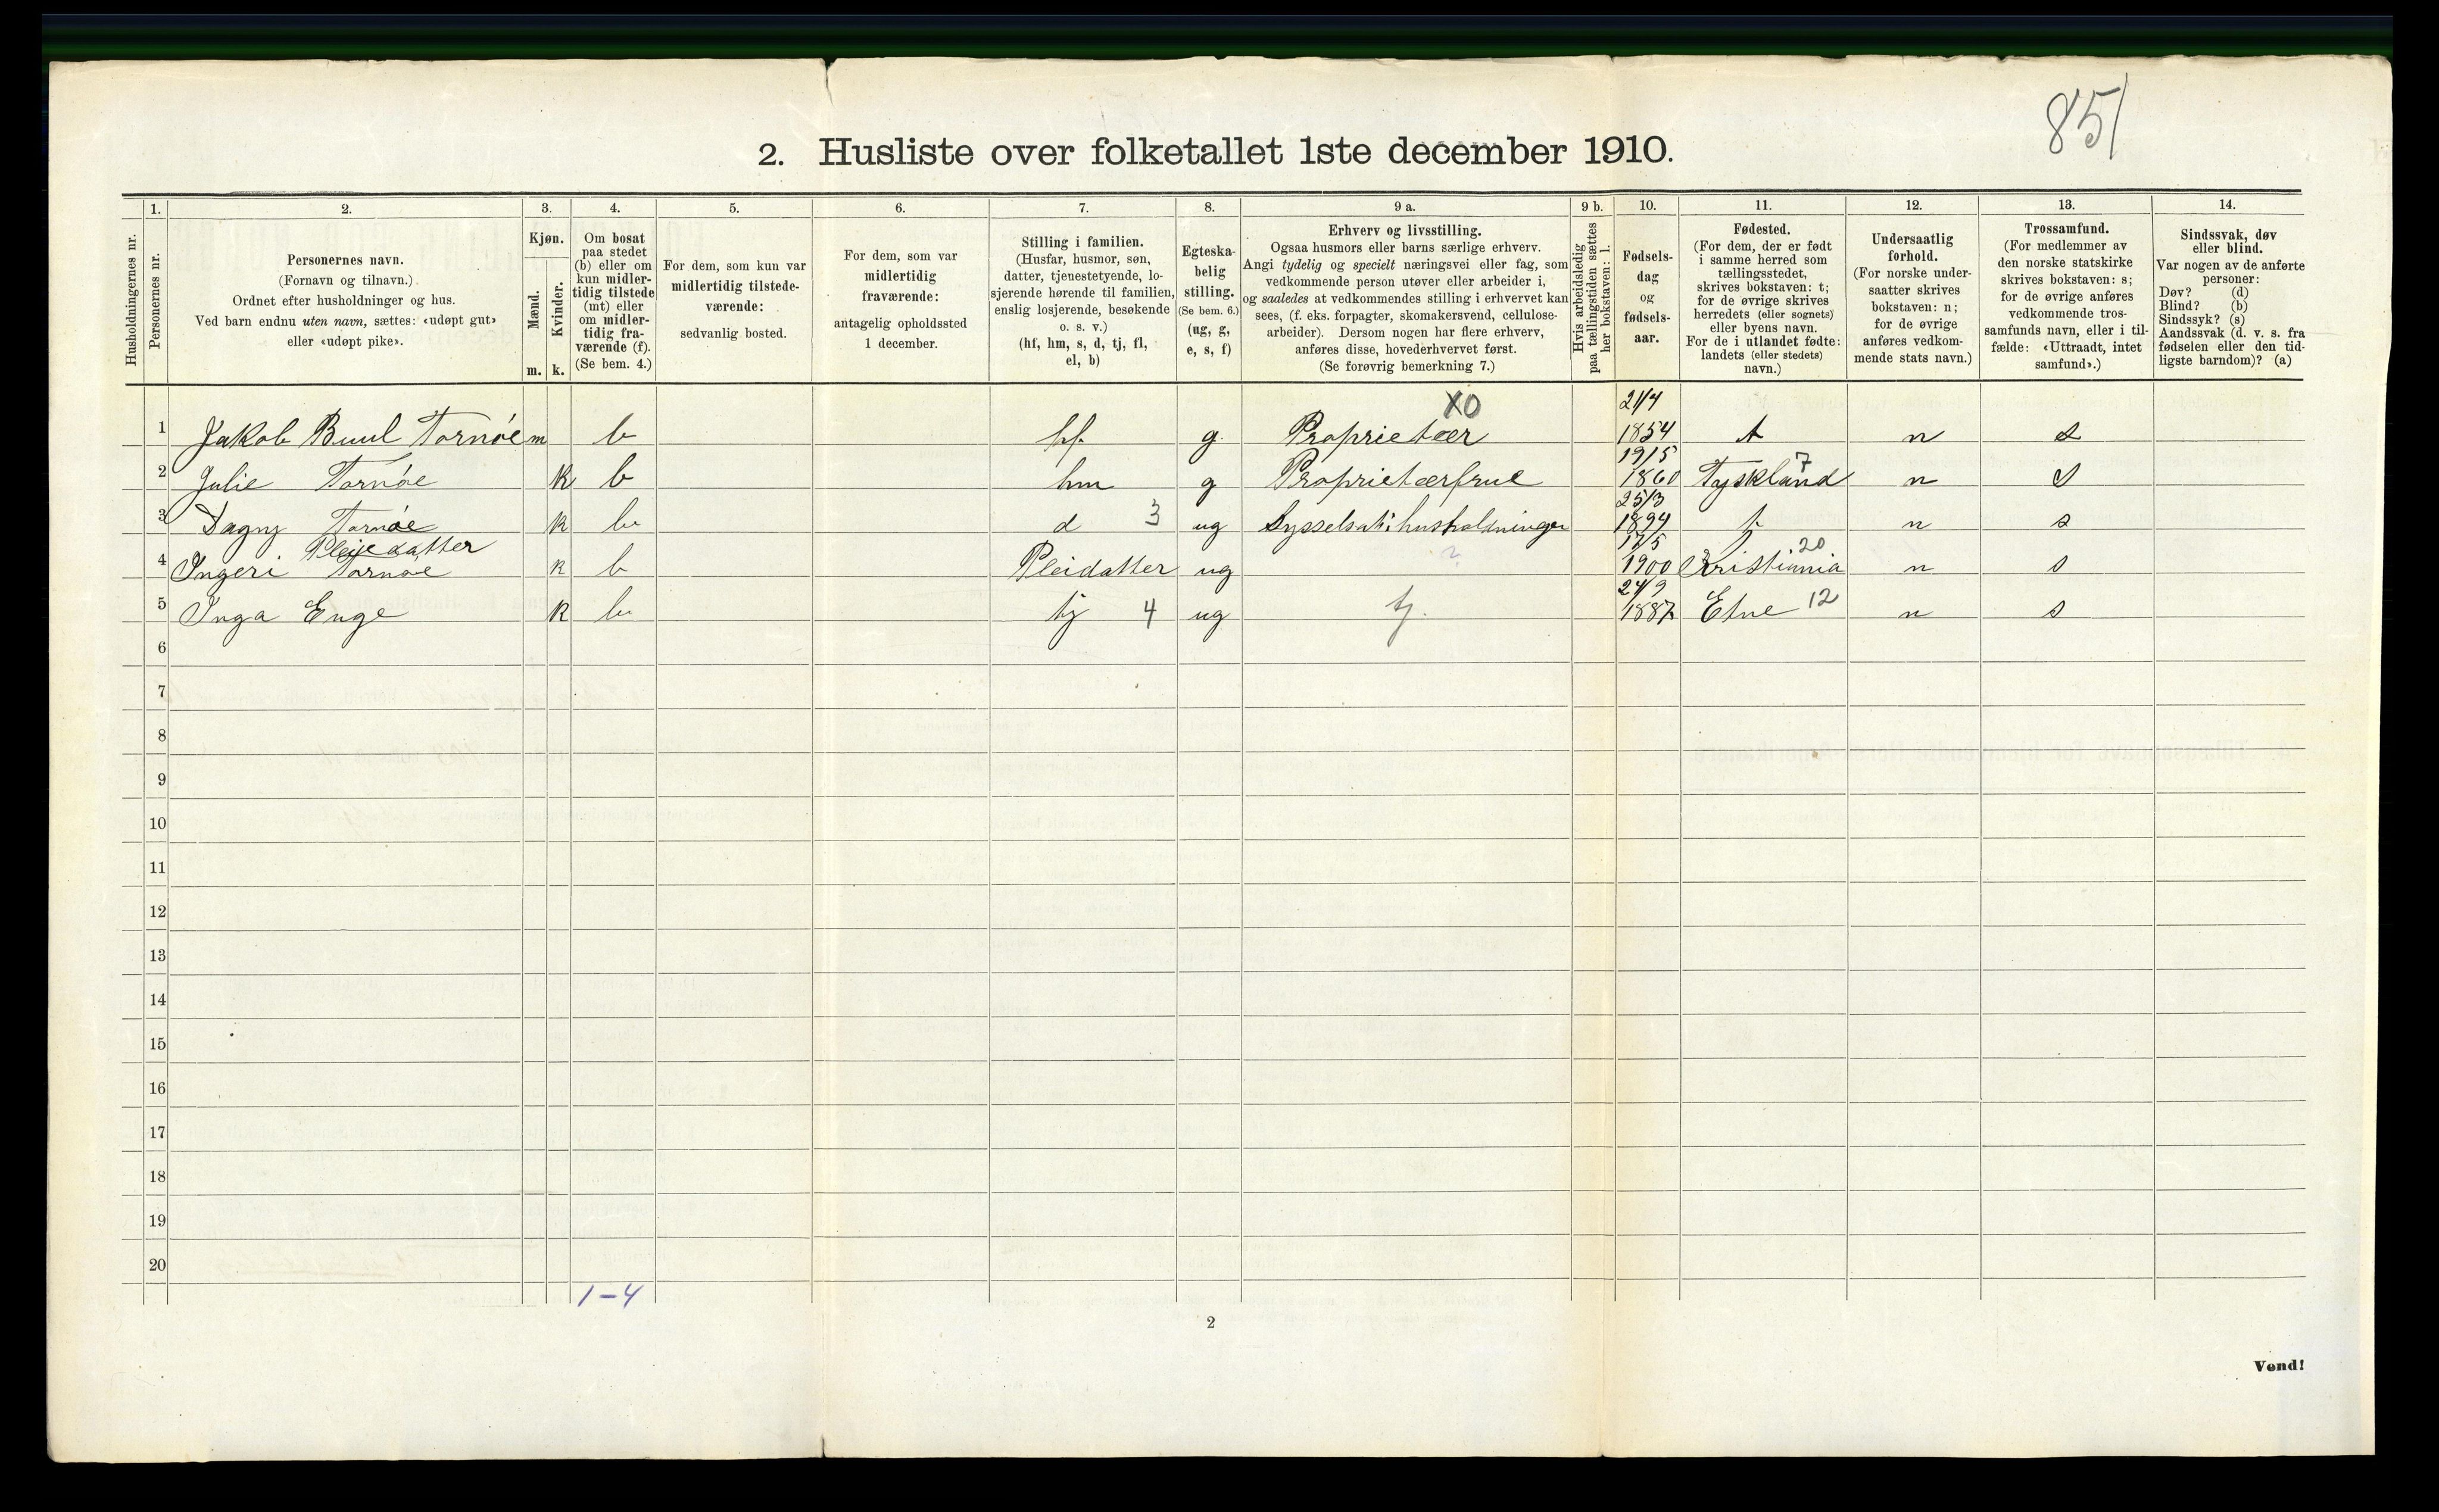 851
2. Husliste over folketallet 1ste december 1910.
1. 2. 3. 4. 5. 6. 7. 8. 9 a. 9 b. 10. 11. 12. 13. 14.
Husholdningernes nr.
Personernes nr.
Personernes navn.
(Fornavn og tilnavn.)
Ordnet efter husholdninger og hus.
Ved barn endnu uten navn, sættes: «udøpt gut»
eller «udøpt pike».
Kjøn.
Mænd.
Kvinder.
m. k.
Om bosat
paa stedet
(b) eller om
kun midler-
tidig tilstede
(mt) eller
om midler-
tidig fra-
værende (f).
(Se bem. 4.)
For dem, som kun var
midlertidig tilstede-
værende:
sedvanlig bosted.
For dem, som var
midlertidig
fraværende:
antagelig opholdssted
1 december.
Stilling i familien.
(Husfar, husmor, søn,
datter, tjenestetyende, lo-
sjerende hørende til familien,
enslig losjerende, besøkende
o. s. v.)
(hf, hm, s, d, tj, fl,
el, b)
Egteska-
belig
stilling.
(Se bem. 6.)
(ug, g,
e, s, f)
Erhverv og livsstilling.
Ogsaa husmors eller barns særlige erhverv.
Angi tydelig og specielt næringsvei eller fag, som
vedkommende person utøver eller arbeider i,
og saaledes at vedkommendes stilling i erhvervet kan
sees, (f. eks. forpagter, skomakersvend, cellulose-
arbeider). Dersom nogen har flere erhverv,
anføres disse, hovederhvervet først.
(Se forøvrig bemerkning 7.)
Hvis arbeidsledig
paa tællingstiden sættes
her bokstaven: l.
Fødsels-
dag
og
fødsels-
aar.
Fødested.
(For dem, der er født
i samme herred som
tællingsstedet,
skrives bokstaven: t;
for de øvrige skrives
herredets (eller sognets)
eller byens navn.
For de i utlandet fødte:
landets (eller stedets)
navn.)
Undersaatlig
forhold.
(For norske under-
saatter skrives
bokstaven: n;
for de øvrige
anføres vedkom-
mende stats navn.)
Trossamfund.
(For medlemmer av
den norske statskirke
skrives bokstaven: s;
for de øvrige anføres
vedkommende tros-
samfunds navn, eller i til-
fælde: «Uttraadt, intet
samfund».)
Sindssvak, døv
eller blind.
Var nogen av de anførte
personer:
Døv? (d)
Blind? (b)
Sindssyk? (s)
Aandssvak (d. v. s. fra
fødselen eller den tid-
ligste barndom)? (a)
X0 21/4
1 Jakob Buul Tornøe m b hf. g. Proprietær 1854 t n s
19/5 7
2 Julie Tornøe k b hm g Proprietærfrue 1860 Tyskland n s
25/3
3 Dagny Tornøe k b d 3 ug Sysselsat i husholdningen 1894 t. n s
Pleiedatter 17/5 20
4 Ingeri Tornøe k b Pleidatter ug 1900 Kristiania n s
24/9
5 Inga Enge k b tj 4 ug tj. 1887 Etne 12 n s
6
7
8
9
10
11
12
13
14
15
16
17
18
19
20
1-4
2
Vend!